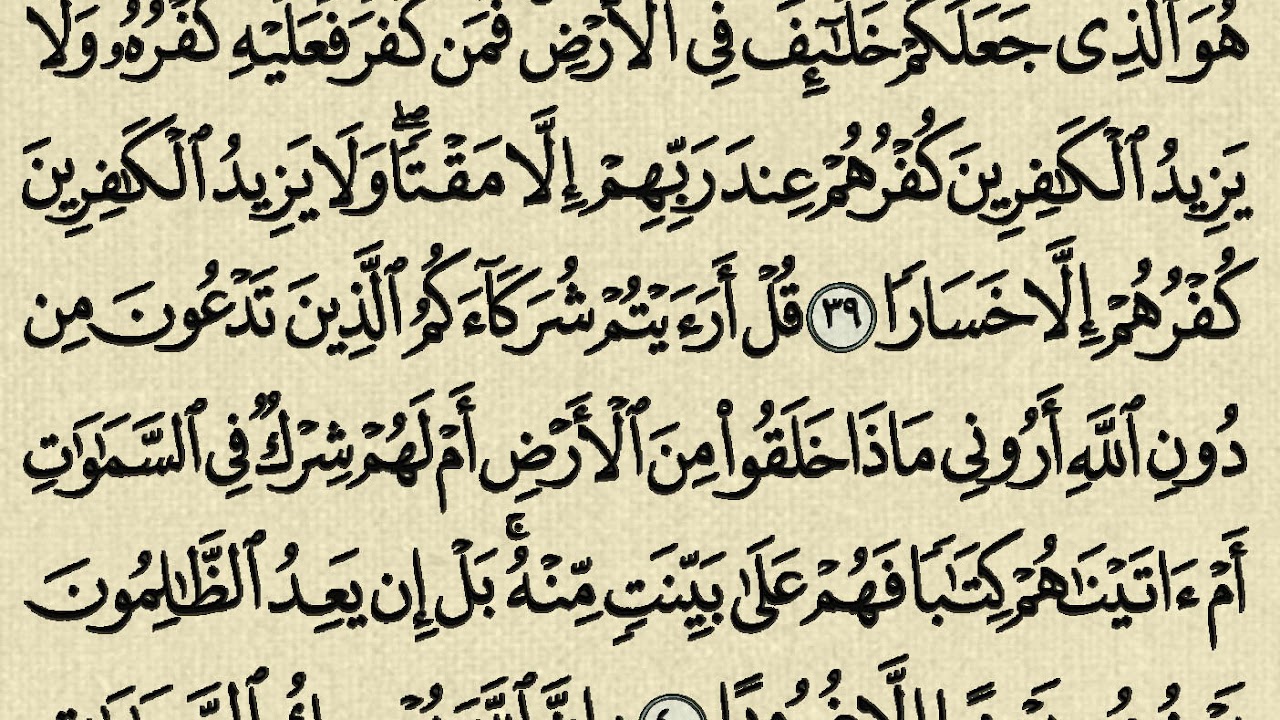 هُوَ ٱلَّذِى جَعَلَكُمْ خَلَٰٓئِفَ فِى ٱلْأَرْضِ فَمَن كَفَرَ فَعَلَيْهِ كُفْرُهُۥ وَلَا
يَزِيدُ ٱلْكَٰفِرِينَ كُفْرُهُمْ عِندَ رَبِّهِمْ إِلَّا مَقْتًا ۖ وَلَا يَزِيدُ ٱلْكَٰفِرِينَ
كُفْرُهُمْ إِلَّا خَسَارًا ٣٩ قُلْ أَرَءَيْتُمْ شُرَكَآءَكُمُ ٱلَّذِينَ تَدْعُونَ مِن
دُونِ ٱللَّهِ أَرُونِى مَاذَا خَلَقُوا۟ مِنَ ٱلْأَرْضِ أَمْ لَهُمْ شِرْكٌ فِى ٱلسَّمَٰوَٰتِ
أَمْ ءَاتَيْنَٰهُمْ كِتَٰبًا فَهُمْ عَلَىٰ بَيِّنَتٍ مِّنْهُ ۚ بَلْ إِن يَعِدُ ٱلظَّٰلِمُونَ